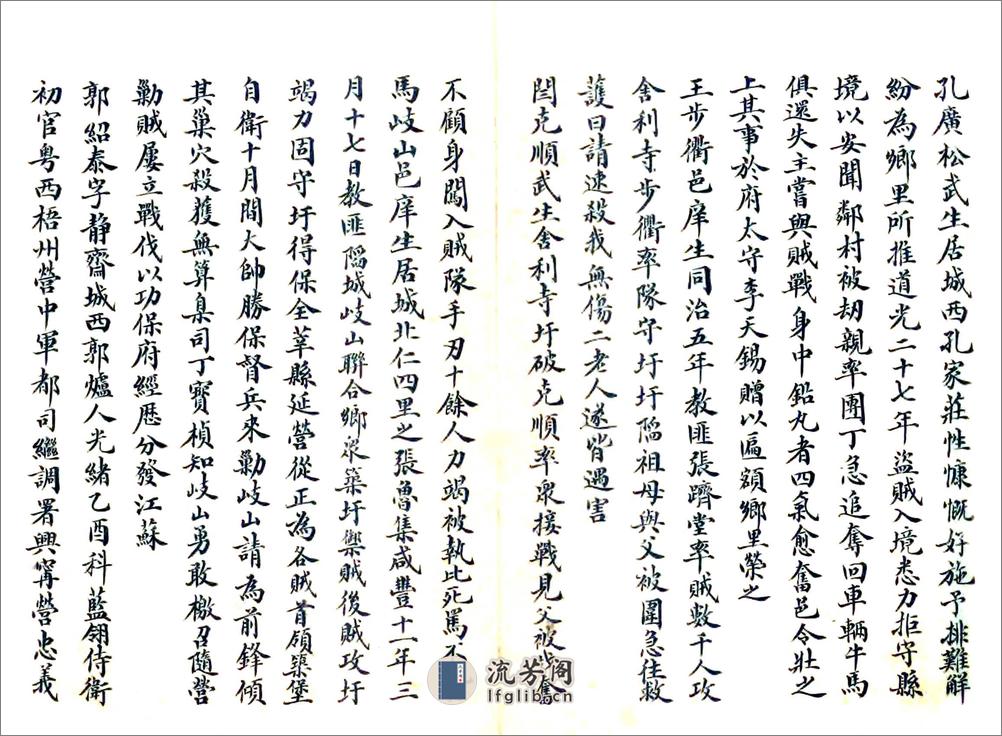 孔廣松武生居城西孔家莊性慷慨好施予排難解
紛為鄉里所推道光二十七年盜賊入境悉力拒守縣
境以安聞鄰村被刼親率團丁急追奪回車輛牛馬
俱還失主嘗與賊戰身中鉛丸者四氣愈奮邑令壯之
上其事於府太守李天錫贈以匾額鄉里榮之
王步衢邑庠生同治五年教匪張躋堂率賊數千人攻
舍利寺步衢率隊守圩圩陷祖母與父被圍急往救
護曰請速殺我無傷二老人遂皆遇害
閆克順武生舍利寺圩破克順率衆接戰見父被
不顧身闖入賊隊手刃十餘人力竭被執比死罵不
馬岐山邑庠生居城北仁四里之張魯集咸豐十一年三
月十七日教匪陷城岐山聯合鄉衆築圩禦賊後賊攻圩
竭力固守圩得保全莘縣延營從正為各賊首領築堡
自衛十月間大帥勝保督兵來勦岐山請為前鋒傾
其巢穴殺獲無算臬司丁寶楨知岐山勇敢檄召隨營
勦賊屢立戰伐以功保府經歷分發江蘇
郭紹泰字靜齋城西郭爐人光緒乙酉科藍翎侍衛
初官粤西梧州營中軍都司繼調署興甯營忠義
流芳阁
lfglib.cn